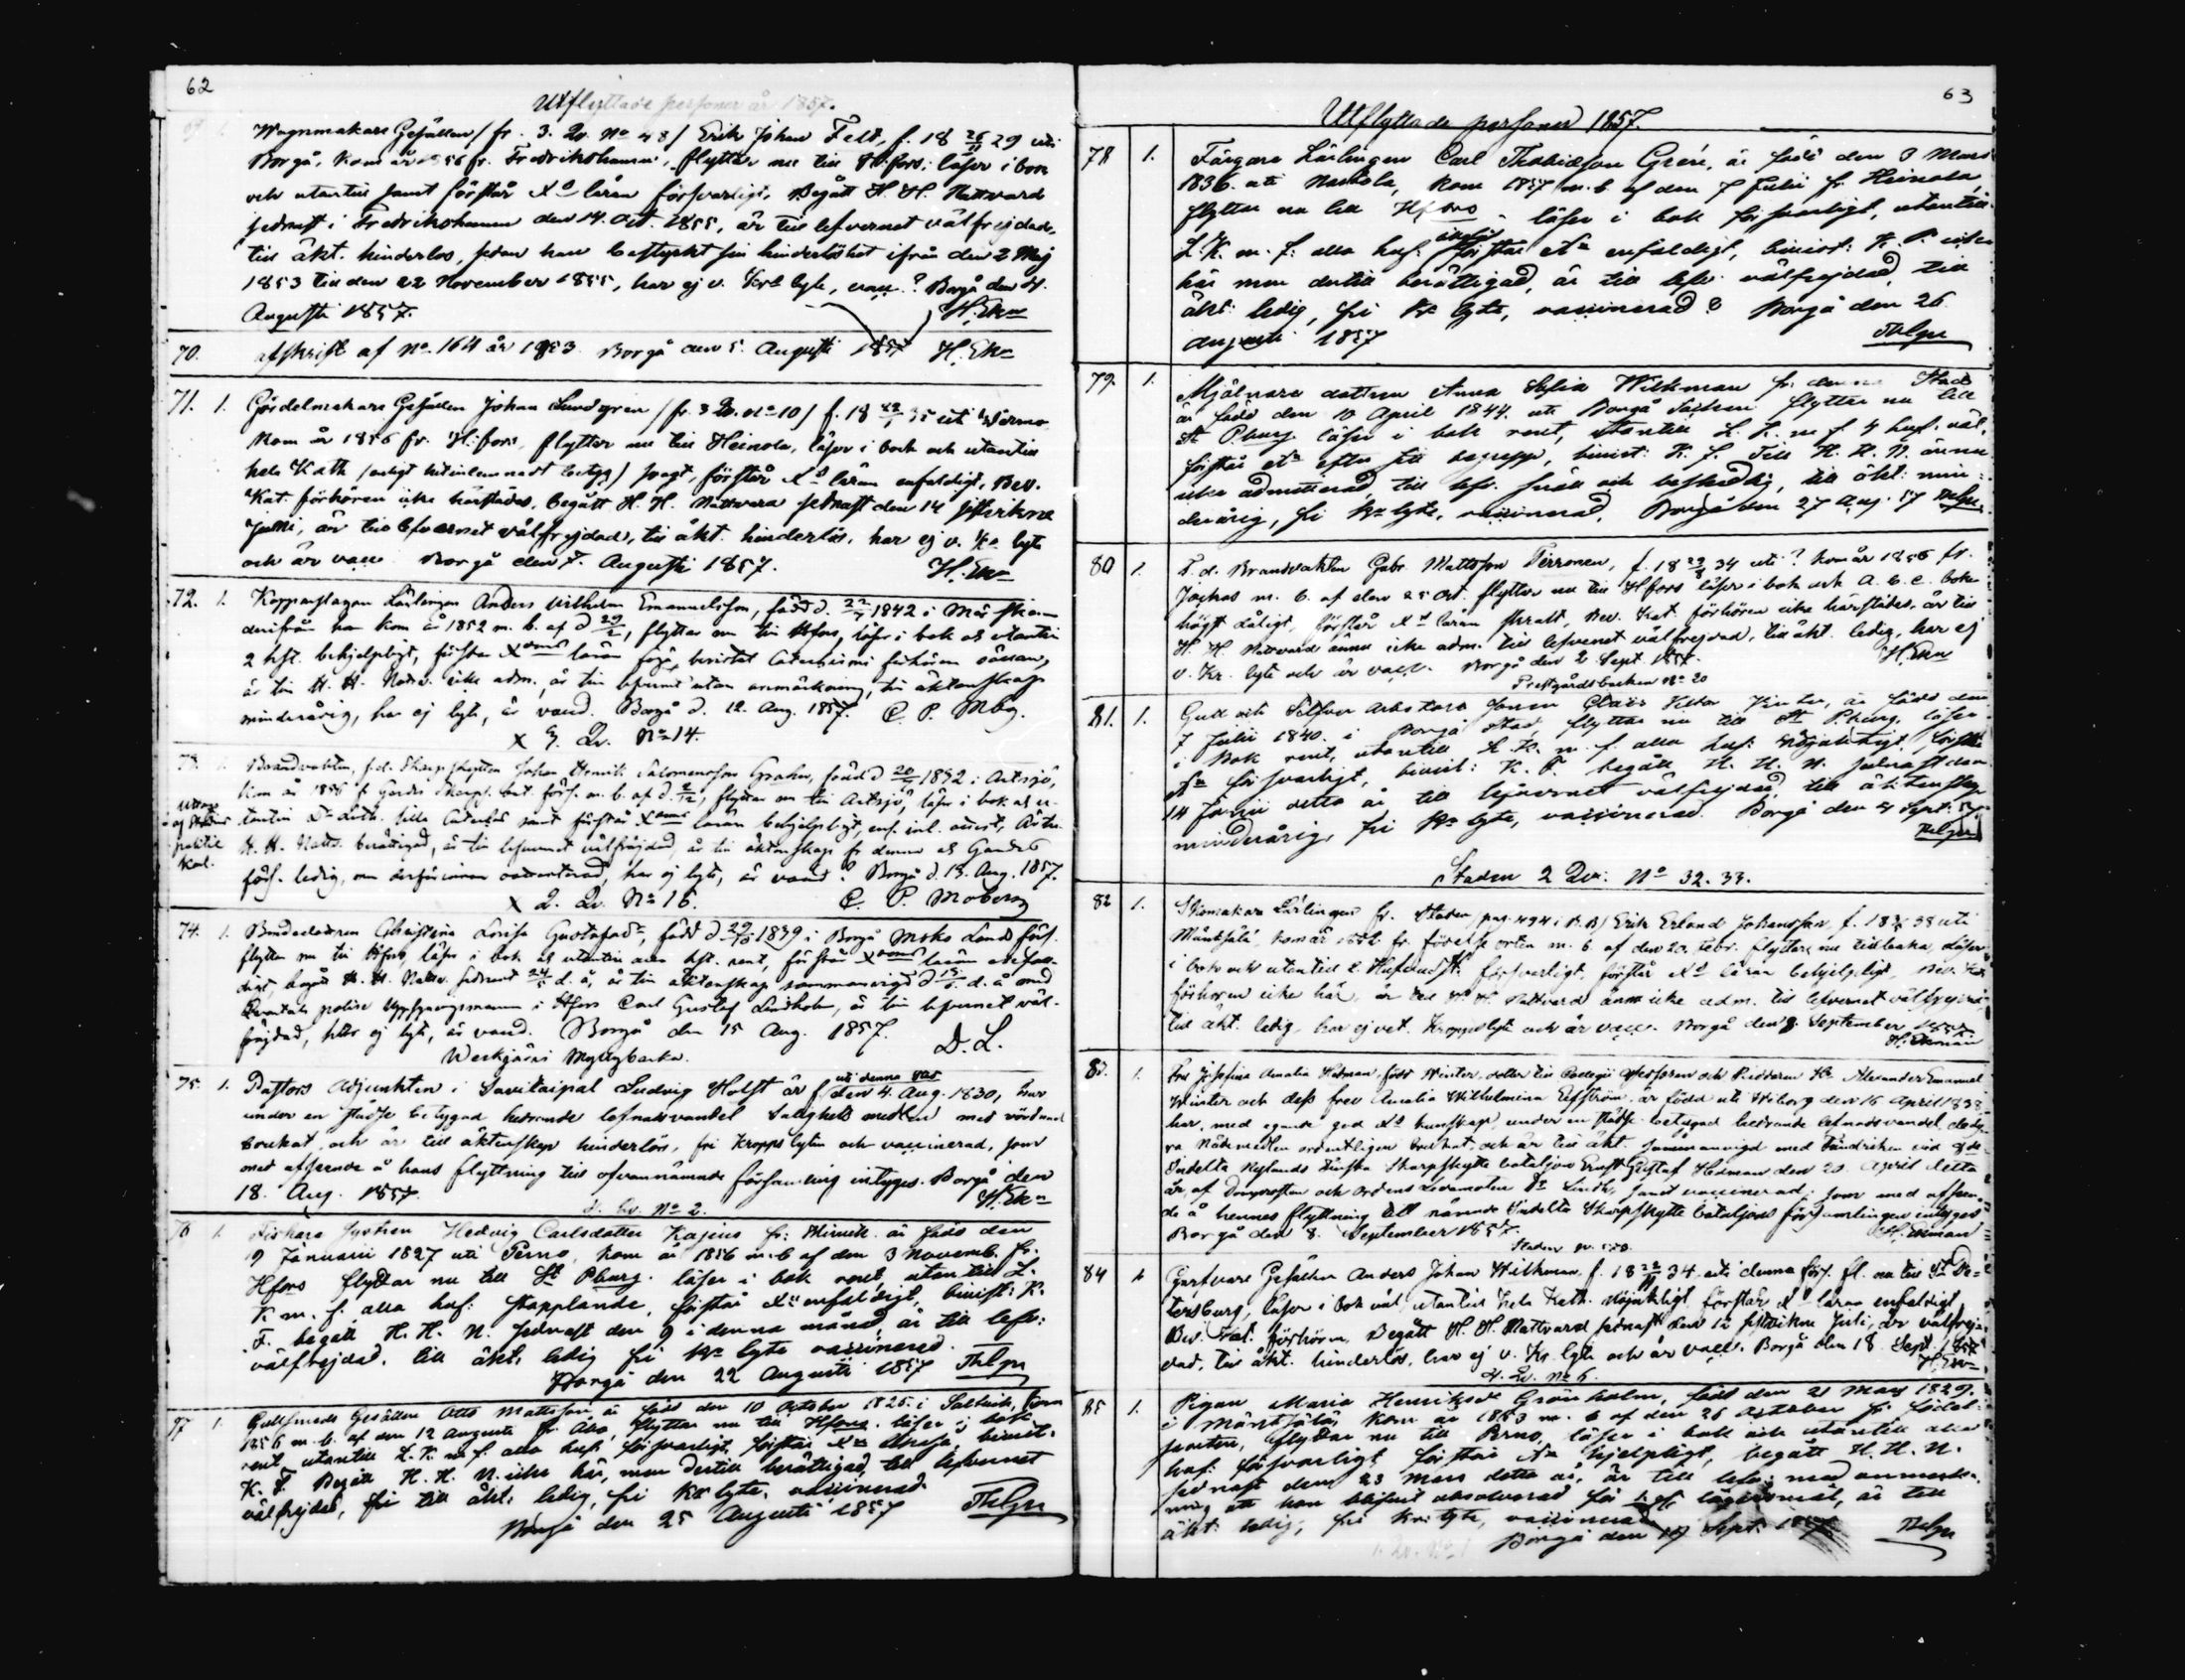 62
Utflyttade personer år 1857.
69 1. Wagnmakare Gesällen / fr. 3. Qv. No 48 / Erik Johan Felt, f. 18 26/11 29 uti
Borgå, kom år 1856 fr. Fredrikshamn, flyttar nu till H:fors; läser i bok
och utantill samt förstår Xs läran försvarligt, Begått H. H. Nattvard
sednast i Fredrikshamn den 14. Oct. 1855, är till lefvernet välfrejdad,
till äkt. hinderlös, sedan han bestyrkt sin hinderlöshet ifrån den 2 Maj
1853 till den 22 November 1855, har ej v. Krs lyte, vacc.? Borgå den
Augusti 1857. H. Ekn
70. afskrift af No 164 år 1853. Borgå den 5. Augusti 1857 H. Ekn
71. 1. Gördelmakare Gesällen Johan Lundgren / fr. 3 Qv. No 10 / f. 18 35 uti
kom år 1856 fr. H:fors, flyttar nu till Heinola, läser i bok och utantill
hela Kath /enligt hitinlemnadt betyg/ svagt, förstår Xs läran enfaldigt, Bev.
Kat. förhören icke härstädes, begått H. H. Nattvard sednast den 14 sistvikne
Junii, är till lefvernet välfrejdad, till äkt. hinderlös, har ej v. Kr. lyte
och är vacc. Borgå den 7. Augusti 1857. H. Ekn
72. 1. Kopparslagare Lärlingen Anders Wilhelm Emanuelsson, född d. 1842 i
derifrån han kom år 1852 m. b. af d 29/2, flyttar nu till Hfors, läser i bok och utantill
2 hst. behjelpligt, förstår Xdoms läran
är till H. H. Nattv. icke adm., är till lefvernet utan anmärkning, till äktenskap
minderårig, har ej lyte, är vaccd. Borgå d. 12. Aug. 1857. C. P. Mbg.
x 3. Qv. No 14.
73. 1. Brandvakten, f.d. Skarpskytten Johan Henrik Salomonsson Grahn, född d 1832 i Artsjö,
kom år 1856 fr Gardes Skarpsk. bat. förs. m. b. af d. 2/12, flyttar nu till Artsjö, läser i bok och u-
tantill Dr Luth. lilla Cateches samt förstår Xdoms läran behjelpligt,
H. H. Nattv. berättigad, är till lefvernet välfrejdad, är till äktenskap fr denna och Gardes
förs. ledig, har ej lyte, är vaccd? Borgå d. 13. Aug. 1857.
x 2. Qv. No 16. C. P. Moberg
74. 1. Christina Lovisa Gustafsdr, född d 1839 i Borgå Lands förs.
flyttar nu till Hfors, läser i bok och utantill alla hst. rent, förstår Xdoms läran enfal-
digt, begått H. H. Nattv. sednast d. å, är till äktenskap sammanvigd d. å med
polise uppsyningsmannen i Hfors Carl Gustaf Lindholm, är till lefvernet väl-
frejdad, har ej lyte, är vaccd. Borgå den 15 Aug. 1857. D. L.
75. 1. Pastors Adjunkten i Savitaipal Ludvig Holst är f uti denna stad den 4. Aug. 1830, har
under en städse betygad hedrande lefnadsvandel Salighets medlen med vördnad
brukat, och är till äktenskap hinderlös, fri kropps lyten och vaccinerad, som
med afseende å hans flyttning till ofvannämnde församling intygas. Borgå den
18. Aug. 1857. H. Ekn
Qv. No 2.
76 1. Fiskare Hedvig Carlsdotter Kajus är född den
9 Januarii 1827 uti Perno, kom år 1856 m. b af den 3 Novemb. fr.
Hfors flyttar nu till St Pburg. läser i bok rent, utantill L.
K. m. f. alla huf: stapplande, förstår Xn enfaldigt, bivist: K.
F. begått H. H. N. sednast den 9 i denna månad, är till lefv:
välfrejdad, till äkt: ledig fri krs lyte vaccinerad.
Borgå den 22 Augusti 1857 Thlgn
77 1. Guldsmeds Gesällen Otto Mattsson är född den 10 October 1825 i kom
1856 m. b. af den 12 Augusti fr. Åbo, flyttar nu till Hfors. läser i bok
rent, utantill L. K. m. f. alla huf. försvarligt, förstår Xn bivist.
K. F. Begått H. H. N. icke här, men dertill berättigad, till lefvernet
välfrejdad, fri till äkt: ledig, fri krs lyte, vaccinerad.
Borgå den 25 Augusti 1857 Thlgn
63
Utflyttade personer 1857.
78 1. Färgare Lärlingen Carl Thobiasson Grén, är född den 3 Mars
1836. uti Nastola, kom 1857 m. b af den 7 Julii fr. Heinola,
flyttar nu till Hfors. läser i bok försvarligt, utantill
L. K. m. f. alla huf: förstår Xn enfaldigt, bivist: K. F. icke
här men dertill berättigad, är till lefv: välfrejdad, till
äkt: ledig, fri Krs lyte, vaccinerad? Borgå den 26
Augusti 1857 Thlgn
79. 1. Mjölnare dottren Anna Sofia Wilkman fr. denna Stad
är född den 10 April 1844. uti Borgå Socken flyttar nu till
St Pburg läser i bok rent, utantill L. K. m f 4 huf. väl,
förstår Xn efter sitt begrepp, bivist: K. F. till H. H. N. ännu
icke admitterad, till lefv. snäll och beskedlig, till äkt: min-
derårig, fri krs lyte, vaccinerad. Borgå den 27 Aug. 57 Thlgn
80 1. F. d. Brandvakten Gabr. Mattsson Pirronen, f. 18 34 uti? kom år 1856 fr.
Jockas m. b. af den 25 Oct. flyttar nu till Hfors läser i bok och A. b. c. boken
högst dåligt, förstår Xs läran skralt, Bev. Kat. förhören icke härstädes, är till
H. H. Nattvard ännu icke adm. till lefvernet välfrejdad, till äkt. ledig, har ej
v. Kr. lyte och är vacc. Borgå den 2 Sept. 1857. H. Ekn
Prestgårdsbacken No 20
81. 1. Guld och Silfver Arbetare Sonen Claës Victor är född den
7 Julii 1840. i Borgå stad, flyttar nu till St Pburg. läser
i Bok rent, utantill L. K. m. f. alla huf: nöjaktigt, förstår
Xn försvarligt, bivist: K. F. begått H. H. N. sednast den
14 Junii detta år till lefvernet välfrejdad, till äktenskap
minderårig, fri Krs lyte, vaccinerad. Borgå den 4 Sept: 57.
Thlgn
Staden 2 Qv: No 32. 33.
82 1. Skomakare Lärlingen fr. Staden / pag. 494 i k. B / Erik Erland Johansson, f. 18 38 uti
Mäntsälä, kom år 1852 fr. födelse orten m. b. af den 20. Febr. flyttar nu tillbaka, läser
i bok och utantill 2 Hufvudst. försvarligt, förstår Xs läran behjelpligt, Bev. Kat
förhören icke här, är till H. H. Nattvard ännu icke adm. till lefvernet välfrejdad,
till äkt. ledig, har ej vet. Kroppslyte och är vacc. Borgå den 8. September 1857.
H. Ekman
83. 1. Fru Josefina Amalia Hedman, född Winter, dotter till Collegii Assessoren och Riddaren Hr Alexander Emanuel
Winter och dess fru Amalia Wilhelmina Elfström, är född uti Wiborg den 16 April 1838
har, med egande god Xs kunskap, under en städse betygad hedrande lefnadsvandel, dedy-
ra Nådemedlen ordentligen brukat, och är till äkt. sammanvigd med Fändriken vid
Indelta Nylands Finska Skarpskytte bataljon Ernst Gustaf Hedman den 20. April detta
år, af Domprosten och Ordens Ledamoten Dr Lindh, samt vaccinerad; som med afseen-
de å hennes flyttning till nämnde Indelta Skarpskytte bataljons församlingen intygas
Borgå den 8. September 1857. H. Ekman
Staden p. 578.
84 1. Garfvare Gesällen Anders Johan Wilkman, f. 18 34 uti denna förs. fl. nu till St Pe-
tersburg, läser i bok väl, utantill hela Kath. nöjaktligt, förstår Xs läran enfaldigt,
Bev. Kat. förhören, Begått H. H. Nattvard sednast den 12 sistvikne Juli, är välfrej-
dad, till äkt. hinderlös, har ej v. Kr. lyte och är vacc. Borgå den 18. Sept. 1857
H. Ekn
Qv. No 6.
85 1. Pigan Maria Henriksdr Grönholm, född den 21 Mars 1829.
i Mäntsälä, kom år 1853 m. b af den 26 October fr. födel-
seorten, flyttar nu till Perno, läser i bok och utantill alla
huf: försvarligt förstår Xn hjelpligt, begått H. H. N.
sednast den 23 Mars detta år, är till lefv: med anmerk-
ning att hon blifvit absolverad för 1. gs. lägersmål, är till
äkt: ledig, fri krs: lyte, vaccinerad
Borgå den 19 Sept: 1857 Thlgn
1. Qv. No 1